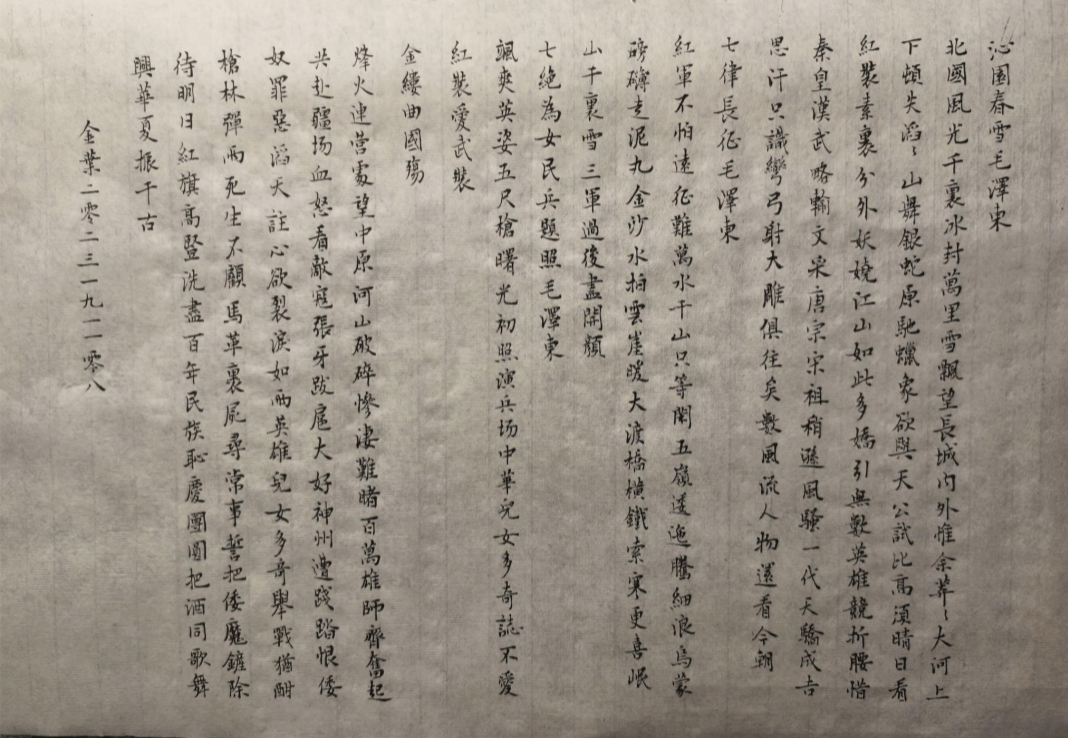 沁園春雪毛澤東
北國風光千裏冰封萬里雪飄望長城內外惟余莽〻大河上
下頓失滔〻山舞銀蛇原馳蠟象欲與天公試比高須晴日看
紅裝素裹分外妖嬈江山如此多嬌引無數英雄競折腰惜
秦皇漢武略輸文采唐宗宋祖稍遜風騷一代天驕成吉
思汗只識彎弓射大雕俱往矣數風流人物還看今朝
七律長征毛澤東
紅軍不怕遠征難萬水千山只等閑五嶺逶迤騰細浪烏蒙
磅礴走泥丸金沙水拍雲崖暖大渡橋橫鐵索寒更喜岷
山千裏雪三軍過後盡開顏
七絕為女民兵題照毛澤東
颯爽英姿五尺槍曙光初照演兵场中華兒女多奇誌不愛
紅裝愛武裝
金縷曲國殤
烽火連营處望中原河山破碎慘淒難睹百萬雄師齊奮起
共赴疆场血怒看敵寇張牙跋扈大好神州遭踐踏恨倭
奴罪惡滔天註心欲裂淚如雨英雄兒女多奇舉戰猶酣
槍林彈雨死生不顧馬革裹屍尋常事誓把倭魔鏟除
待明日紅旗高豎洗盡百年民族恥慶團圓把酒同歌舞
興華夏振千古
金葉二零二三一九二一零八